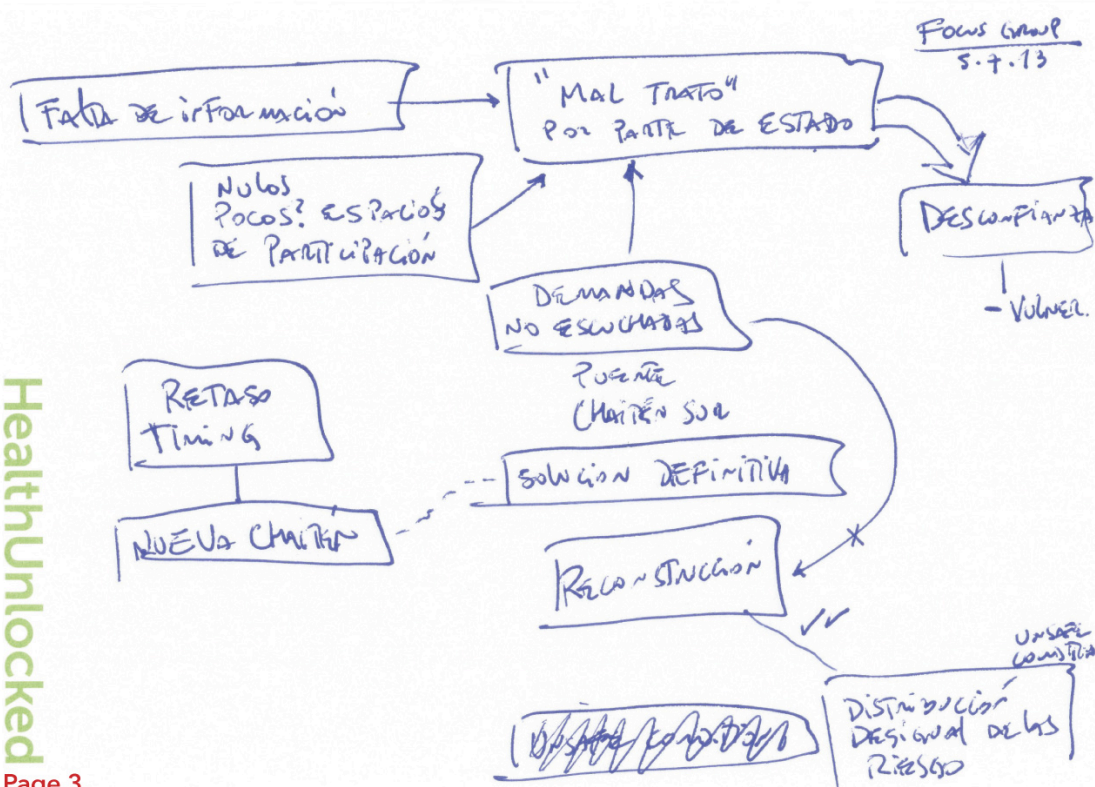 FOCUS GROUP
5.7.13
FALTA DE INFORMACIÓN
"MAL TRATO"
POR PARTE DE ESTADO
NULOS
POCOS? ESPACIOS
DE PARTICIPACIÓN
DESCONFIANZA
- VULNER.
DEMANDAS
NO ESCUCHADAS
PUENTE
CHAITÉN SUR
RETASO
TIMING
SOLUCION DEFINITIVA
NUEVA CHAITÉN
RECONSTRUCCIÓN
UNSAFE
DISTRIBUCIÓN
DESIGUAL DE LAS
RIESGO
HealthUnlocked
Page 3